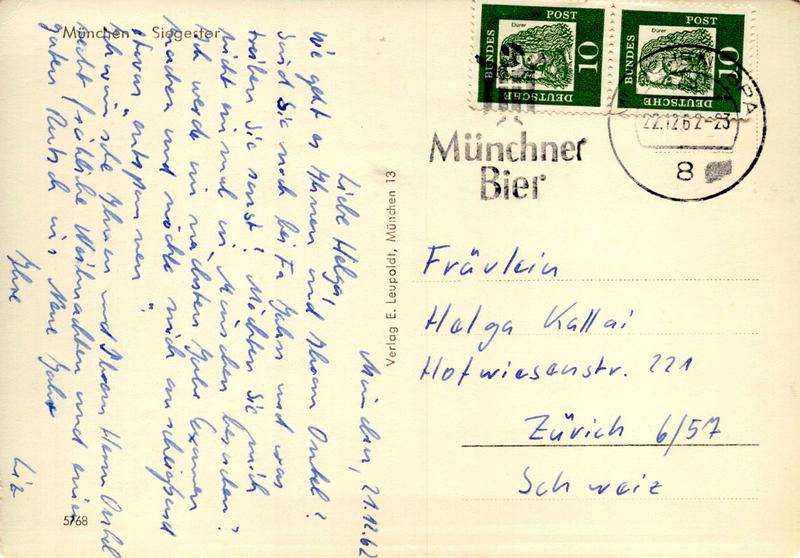 München Siegestor
München, 21.12.62
Liebe Helga!
Wie geht es Ihnen und Ihrem Onkel?
Sind Sie noch bei Fa Jahn und was
treiben Sie sonst? Möchten Sie mich
nicht einmal in München besuchen?
Ich werde im nächsten Jahr Examen
machen und möchte mich anschließend
etwas "entspannen".
Ich wünsche Ihnen und Ihrem Herrn Onkel
recht fröhliche Weihnachten und einen
guten Rutsch ins Neue Jahr
Ihre
Liz
5/68
Verlag E. Leupoldt, München 13
Dürer
POST
BUNDES
10
DEUTSCHE
Dürer
POST
BUNDES
10
DEUTSCHE
22.12.62-23
8
Münchner
Bier
Fräulein
Helga Kallai
Hofwiesenstr. 221
Zürich 6/57
Schweiz